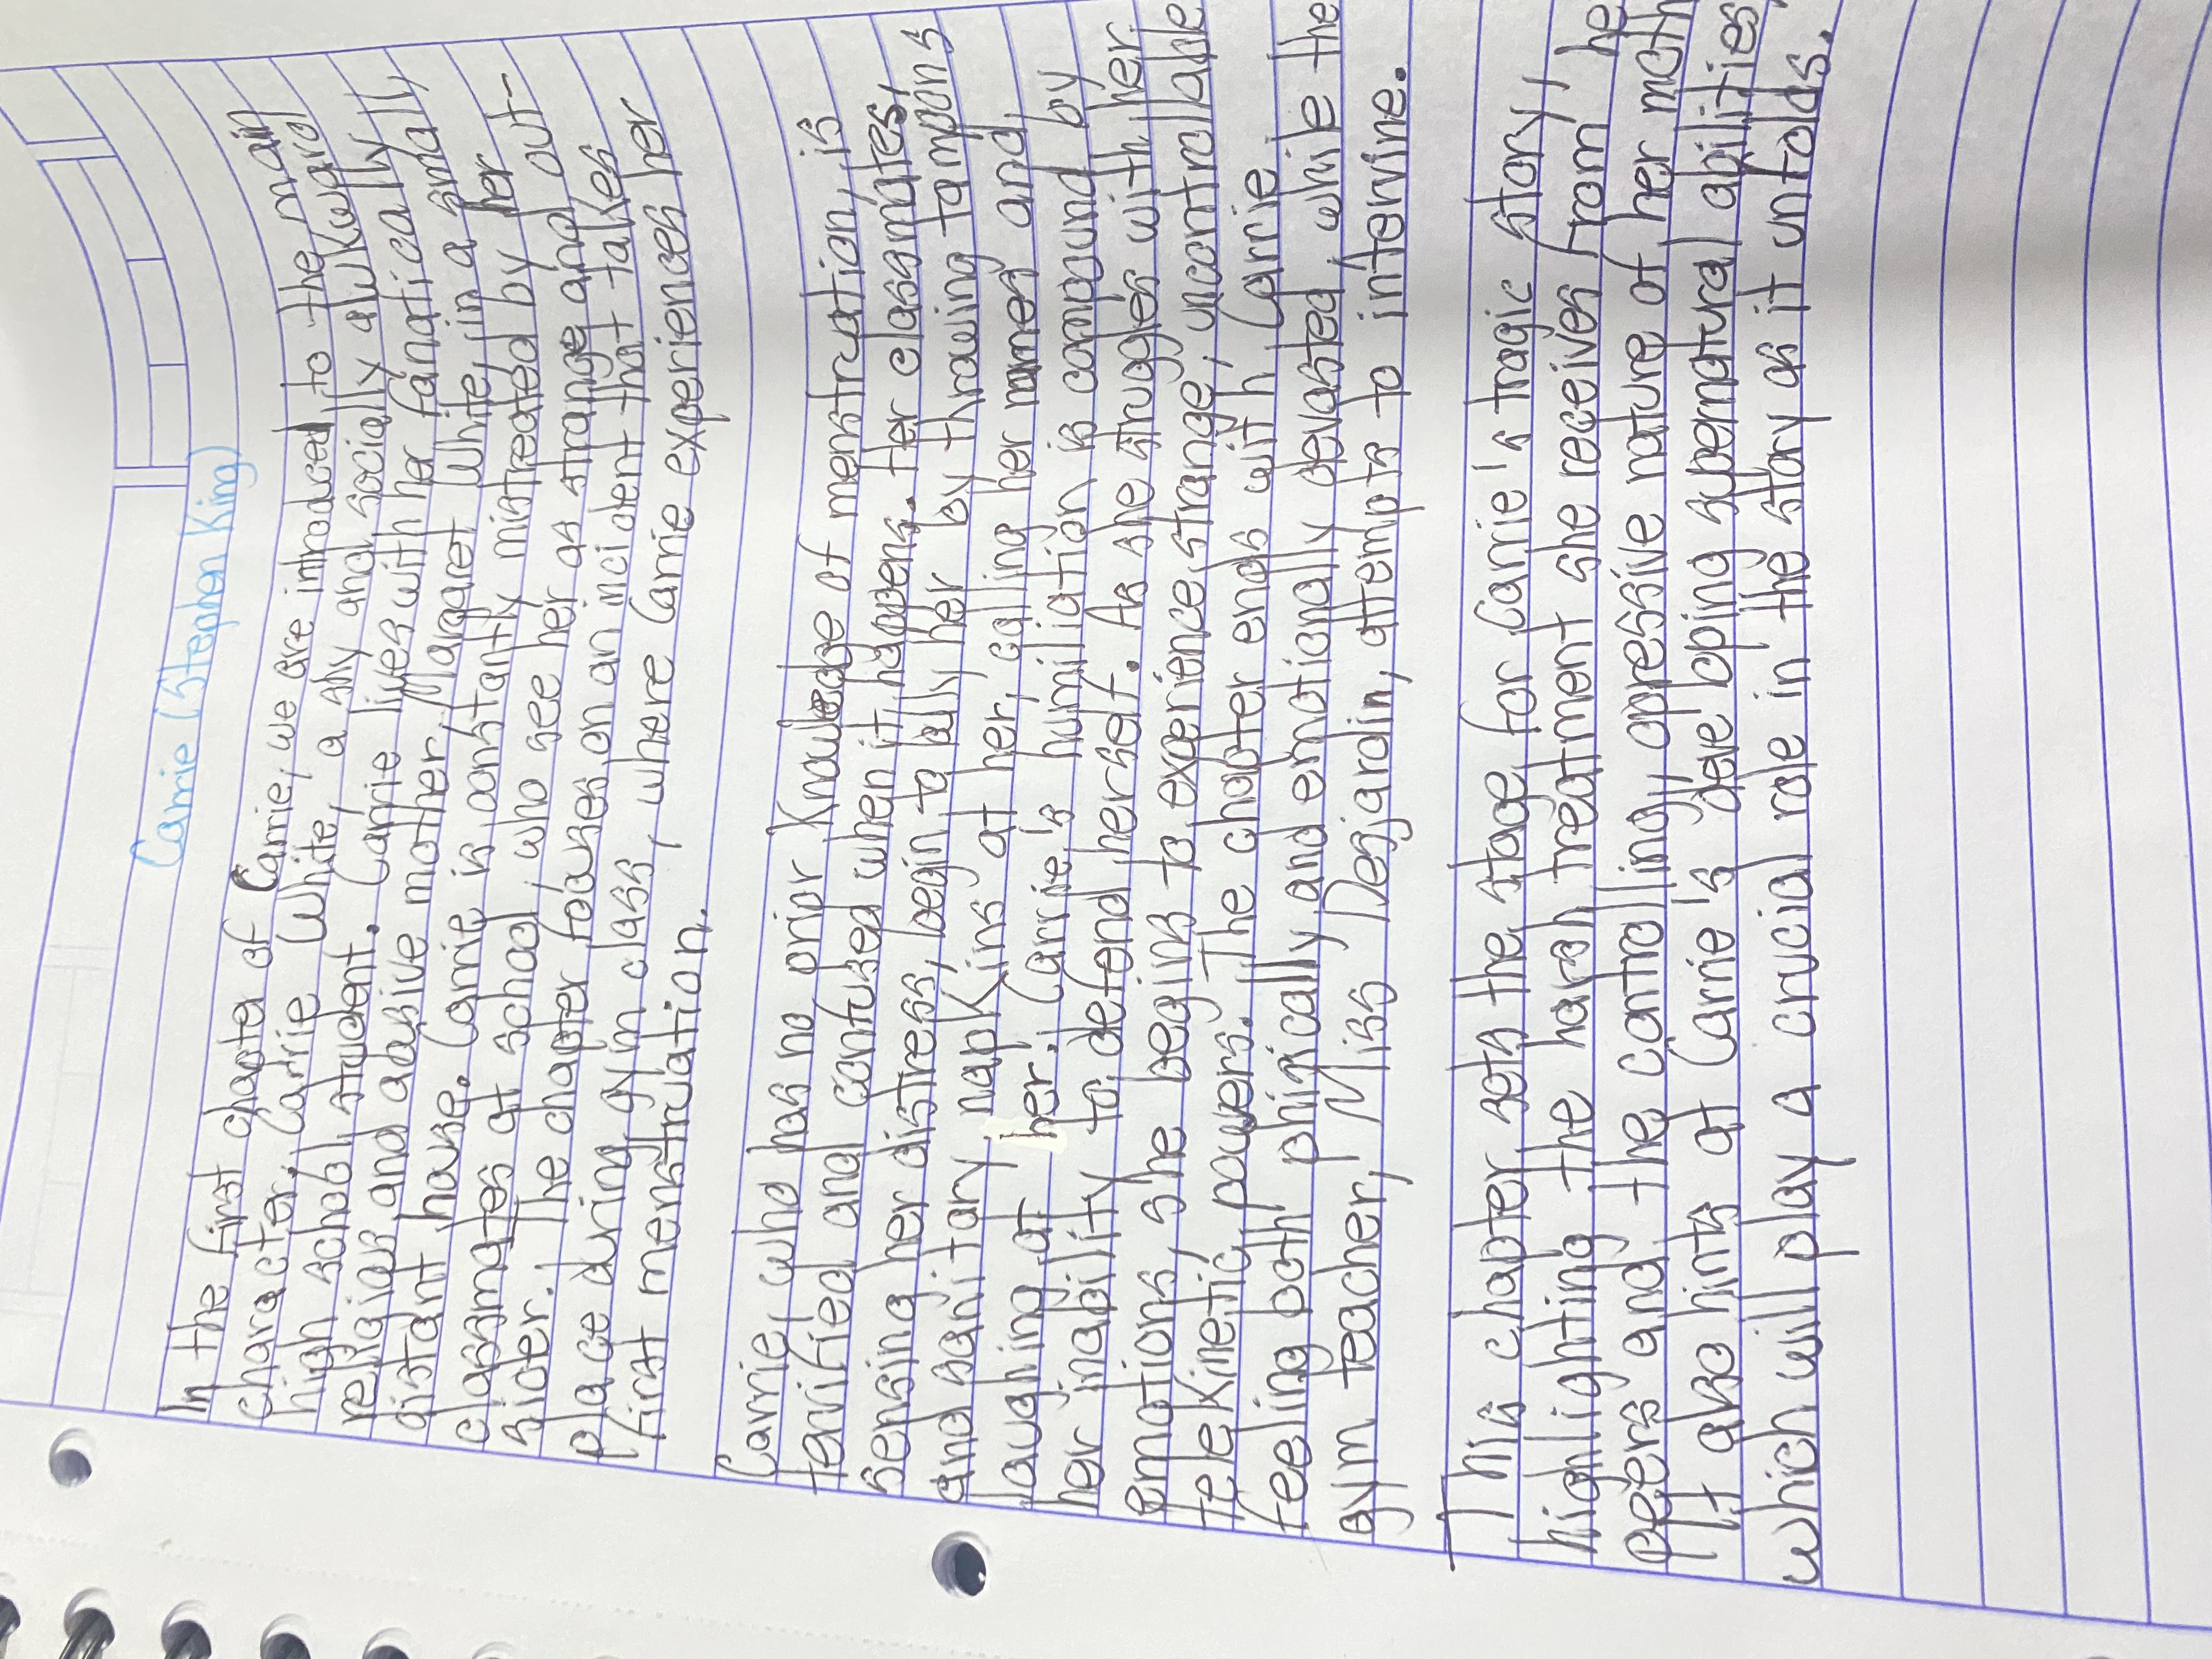 Carrie (Stephen King)
In the first chapte of Carrie, we are introduced to the main
character, Carrie White, a shy and socially awkward
high school student. Carrie lives with her fanatically
religious and abusive mother, Margaret White, in a small,
distant house. Carrie is constantly mistreated by her
classmates at school, who see her as strange and out-
sider. The chapter focuses on an incident that takes
place during gym class, where Carrie experiences her
first menstruation.
Carrie, who has no prior Knowledge of menstruation, is
terrified and confused when it happens. Her classmates,
sensing her distress, begin to bully her by throwing tampons
and sanitary napkins at her, calling her names and
laughing at her. Carrie's humiliation is compound by
her inability to defend herself. As she struggles with her
emotions, she begins to experience strange, uncontrollable
telekinetic powers. The chapter ends with Carrie
feeling both phisically and emotionally devasted, while the
gym teacher, Miss Desjardin, attempts to intervine.
This chapter sets the stage for Carrie's tragic story,
highlighting the harsh treatment she receives from he
peers and the controlling, opressive nature of her moth
It also hints at Carrie's developing supernatural abilities,
which will play a crucial role in the story as it unfolds.